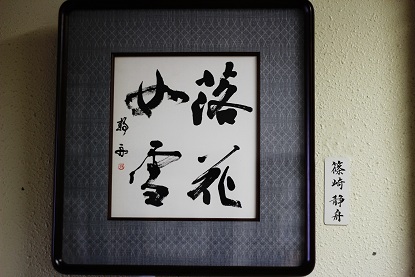 落花
如雪
静舟
篠崎静舟